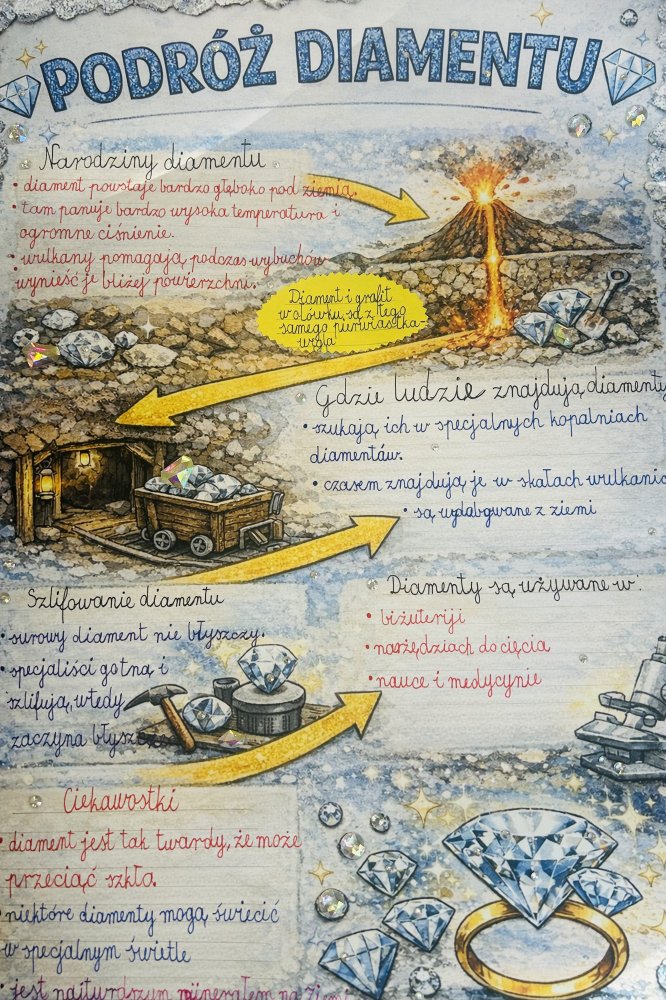 PODRÓŻ DIAMENTU
Narodziny diamentu
• diament powstaje bardzo głęboko pod ziemią.
• tam panuje bardzo wysoka temperatura i
ogromne ciśnienie.
• wulkany pomagają podczas wybuchów
wynieść je bliżej powierzchni.
Diament i grafit
w ołówku są z tego
samego pierwiastka-
węgla
Gdzie ludzie znajdują diamenty
• szukają ich w specjalnych kopalniach
diamentów.
• czasem znajdują je w skałach wulkanic
• są wydobywane z ziemi
Szlifowanie diamentu
• surowy diament nie błyszczy.
• specjaliści go tną i
szlifują, wtedy
zaczyna błyszczeć
Diamenty są używane w:
• biżuteriji
• narzędziach do cięcia
• nauce i medycynie
Ciekawostki
• diament jest tak twardy, że może
przeciąć szkło.
• niektóre diamenty mogą świecić
w specjalnym świetle
• jest najtwardszym minerałem na Ziemi